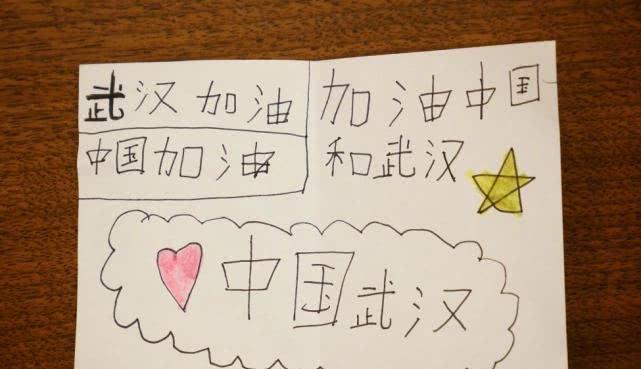 武汉加油
中国加油
加油中国
和武汉
中国武汉